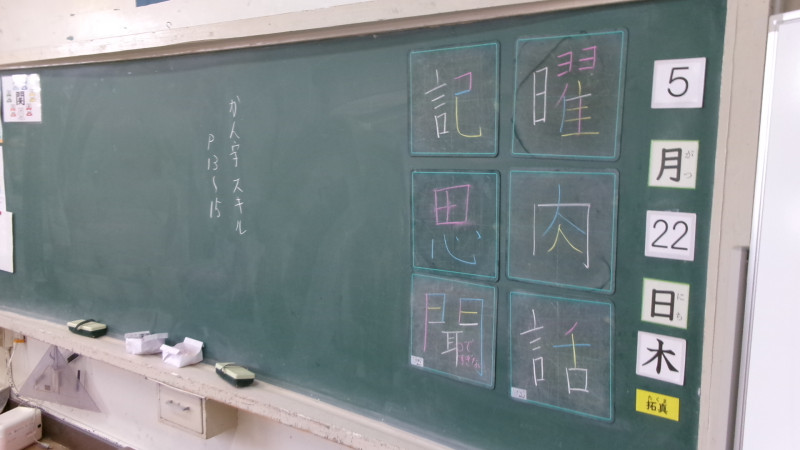 5
月
がつ
22
日
にち
木
拓真
たくま
曜
肉
話
記
思
聞
かん字スキル
P13〜15